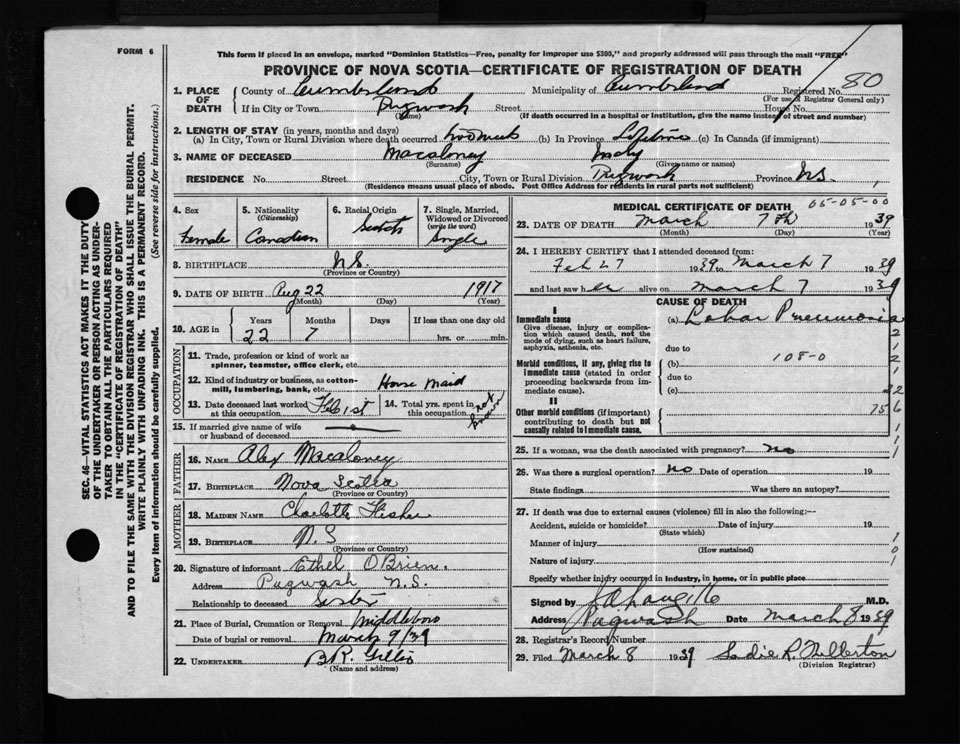 FORM 6
This form if placed in an envelope, marked "Dominion Statistics—Free, penalty for improper use $300," and properly addressed will pass through the mail "FREE"
PROVINCE OF NOVA SCOTIA—CERTIFICATE OF REGISTRATION OF DEATH
80
1. PLACE OF DEATH
County of Cumberland Municipality of Cumberland Registered No.
(For use of Registrar General only)
If in City or Town Pugwash Street House No.
(Name)
(If death occurred in a hospital or institution, give the name instead of street and number)
2. LENGTH OF STAY (in years, months and days)
(a) In City, Town or Rural Division where death occurred two weeks (b) In Province Lifetime (c) In Canada (if immigrant)
3. NAME OF DECEASED Macaloney Mary
(Surname) (Given name or names)
RESIDENCE No. Street City, Town or Rural Division Pugwash Province N.S.
(Residence means usual place of abode. Post Office Address for residents in rural parts not sufficient)
4. Sex
Female
5. Nationality
(Citizenship)
Canadian
6. Racial Origin
Scotch
7. Single, Married, Widowed or Divorced
(write the word)
Single
8. BIRTHPLACE N.S.
(Province or Country)
9. DATE OF BIRTH Aug 22 1917
(Month) (Day) (Year)
10. AGE in
Years Months Days If less than one day old
22 7 hrs. or min.
OCCUPATION
11. Trade, profession or kind of work as spinner, teamster, office clerk, etc.
12. Kind of industry or business, as cotton-mill, lumbering, bank, etc. House Maid
13. Date deceased last worked at this occupation Feb 1st
14. Total yrs. spent in this occupation not known
15. If married give name of wife or husband of deceased
FATHER
16. NAME Alex Macaloney
17. BIRTHPLACE Nova Scotia
(Province or Country)
MOTHER
18. MAIDEN NAME Charlotte Fisher
19. BIRTHPLACE N.S
(Province or Country)
20. Signature of informant Ethel OBrien.
Address Pugwash N.S.
Relationship to deceased Sister
21. Place of Burial, Cremation or Removal Middleboro
Date of burial or removal March 9/39
22. UNDERTAKER B.R. Gillis
(Name and address)
MEDICAL CERTIFICATE OF DEATH 05-05-00
23. DATE OF DEATH March 7th 1939
(Month) (Day) (Year)
24. I HEREBY CERTIFY that I attended deceased from:
Feb 27 1939 to March 7 1939
and last saw her alive on March 7 1939
CAUSE OF DEATH
I
Immediate cause
Give disease, injury or complication which caused death, not the mode of dying, such as heart failure, asphyxia, asthenia, etc.
(a) Lobar Pneumonia
due to
Morbid conditions, if any, giving rise to immediate cause (stated in order proceeding backwards from immediate cause).
(b) 108-0
due to
(c)
II
Other morbid conditions (if important) contributing to death but not causally related to immediate cause.
25. If a woman, was the death associated with pregnancy? no
26. Was there a surgical operation? no Date of operation 19
State findings Was there an autopsy?
27. If death was due to external causes (violence) fill in also the following:—
Accident, suicide or homicide? Date of injury 19
(State which)
Manner of injury
(How sustained)
Nature of injury
Specify whether injury occurred in industry, in home, or in public place
Signed by M.D.
Address Pugwash Date March 8 1939
28. Registrar's Record Number
29. Filed March 8 1939 Sadie R. Fullerton
(Division Registrar)
SEC. 46—VITAL STATISTICS ACT MAKES IT THE DUTY
OF THE UNDERTAKER OR PERSON ACTING AS UNDER-
TAKER TO OBTAIN ALL THE PARTICULARS REQUIRED
IN THE "CERTIFICATE OF REGISTRATION OF DEATH"
AND TO FILE THE SAME WITH THE DIVISION REGISTRAR WHO SHALL ISSUE THE BURIAL PERMIT.
WRITE PLAINLY WITH UNFADING INK. THIS IS A PERMANENT RECORD.
Every item of information should be carefully supplied. (See reverse side for instructions.)